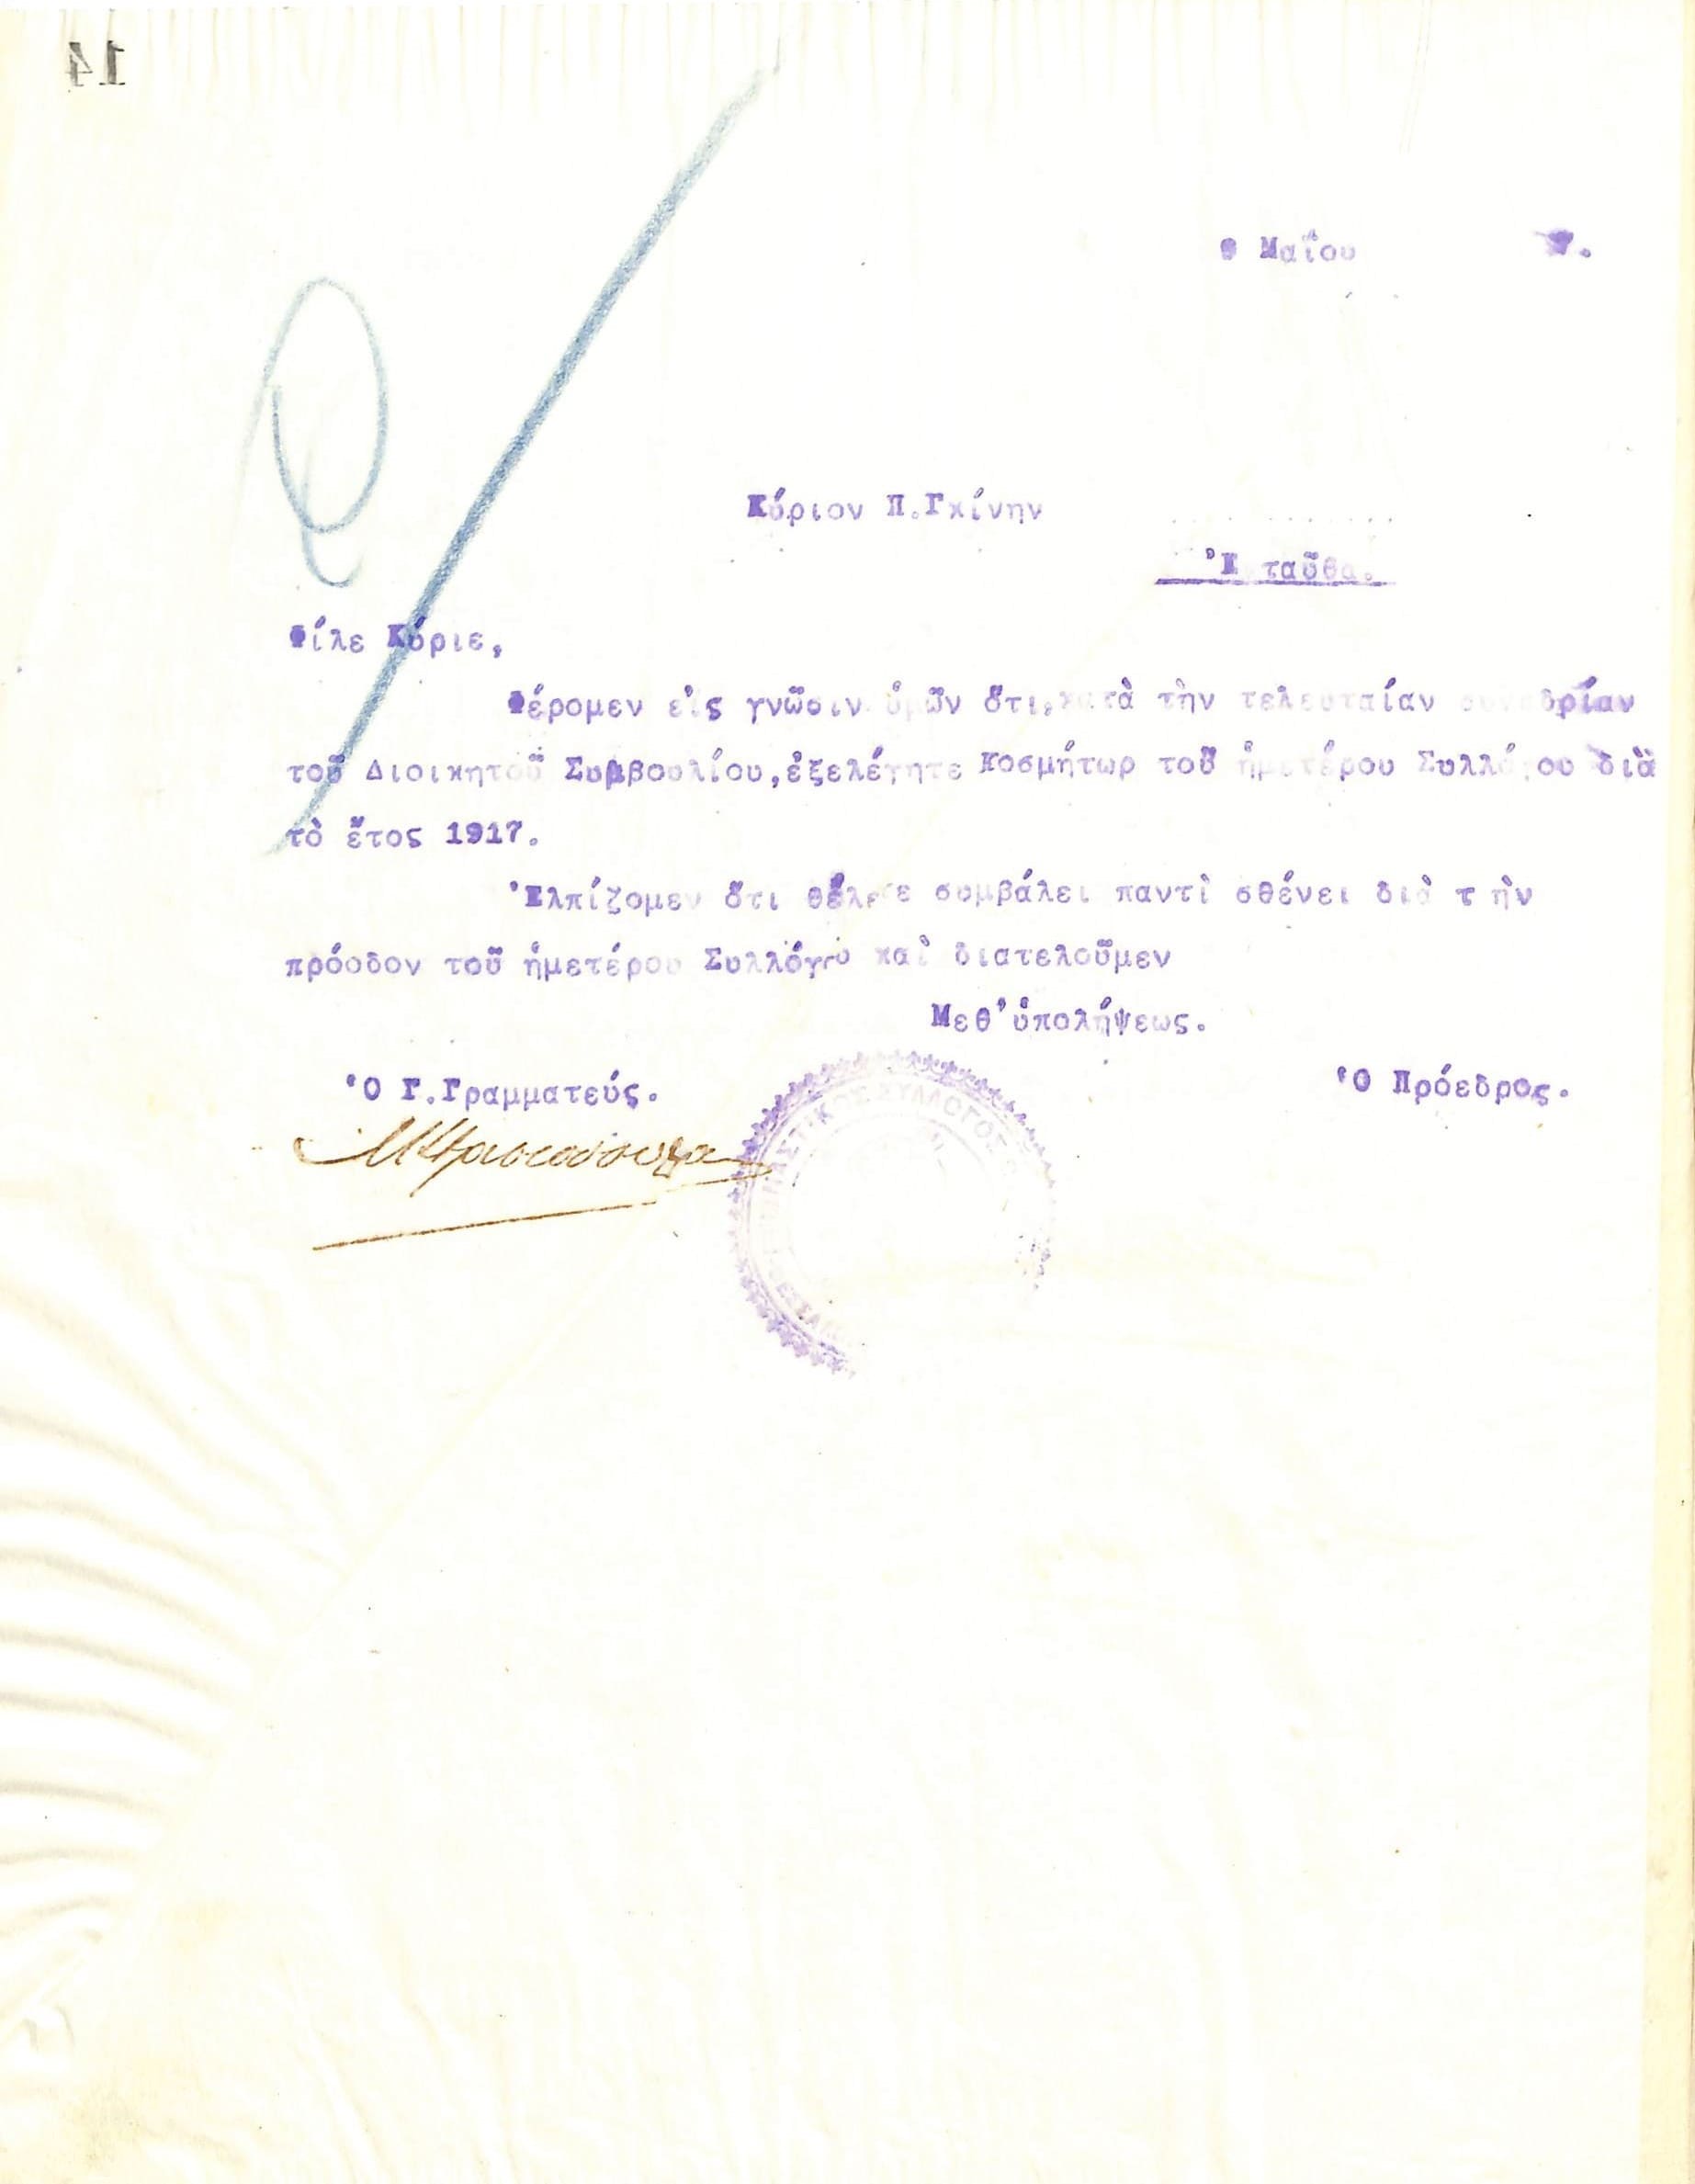 14
9 Μαΐου 7.
Κύριον Π.Γκίνην
Ἐνταῦθα.
Φίλε Κύριε,
Φέρομεν εἰς γνῶσιν ὑμῶν ὅτι,κατὰ τὴν τελευταίαν συνεδρίαν
τοῦ Διοικητοῦ Συμβουλίου,ἐξελέγητε Κοσμήτωρ τοῦ ἡμετέρου Συλλόγου διὰ
τὸ ἔτος 1917.
Ἐλπίζομεν ὅτι θέλετε συμβάλει παντὶ σθένει διὰ τ ὴν
πρόοδον τοῦ ἡμετέρου Συλλόγου καὶ διατελοῦμεν
Μεθ'ὑπολήψεως.
Ὁ Γ.Γραμματεύς. Ὁ Πρόεδρος.
ΣΥΛΛΟΓΟΣ